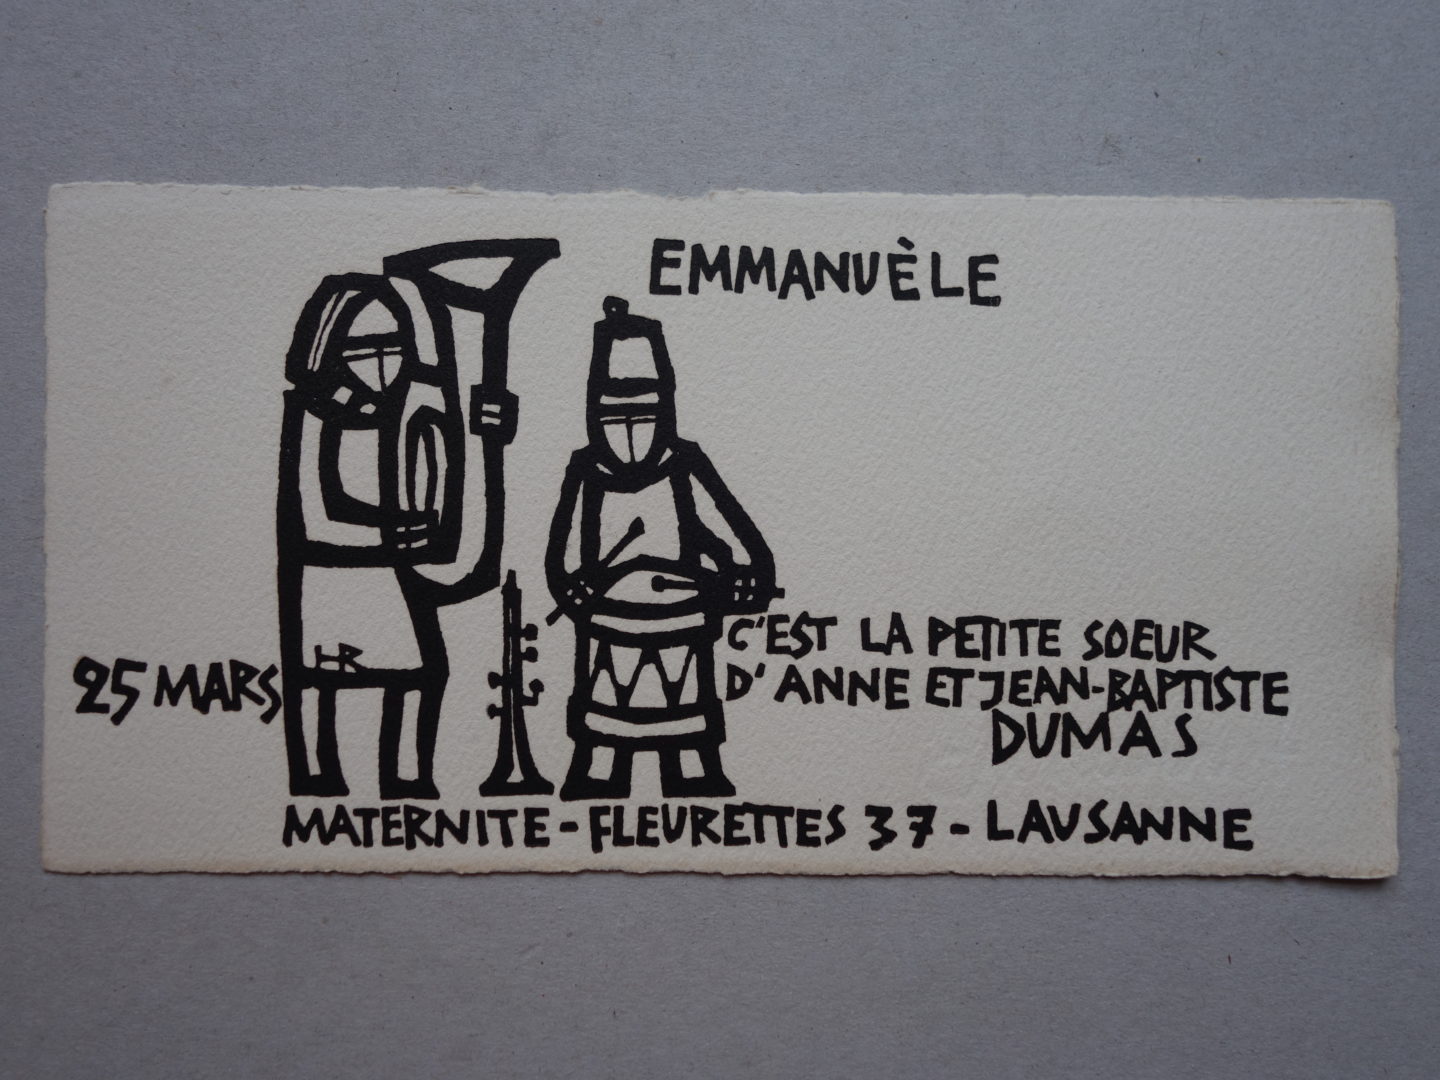 EMMANUÈLE
C'EST LA PETITE SOEUR
D'ANNE ET JEAN-BAPTISTE
DUMAS
25 MARS
HR
MATERNITE - FLEURETTES 37 - LAUSANNE